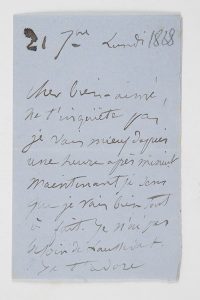 21 7bre Lundi 1868
cher bien-aimé,
ne t'inquiète pas
je vais mieux depuis
une heure après minuit
maintenant je sens
que je vais bien, tout
à fait. Je n'ai pas
besoin de
Je t'adore